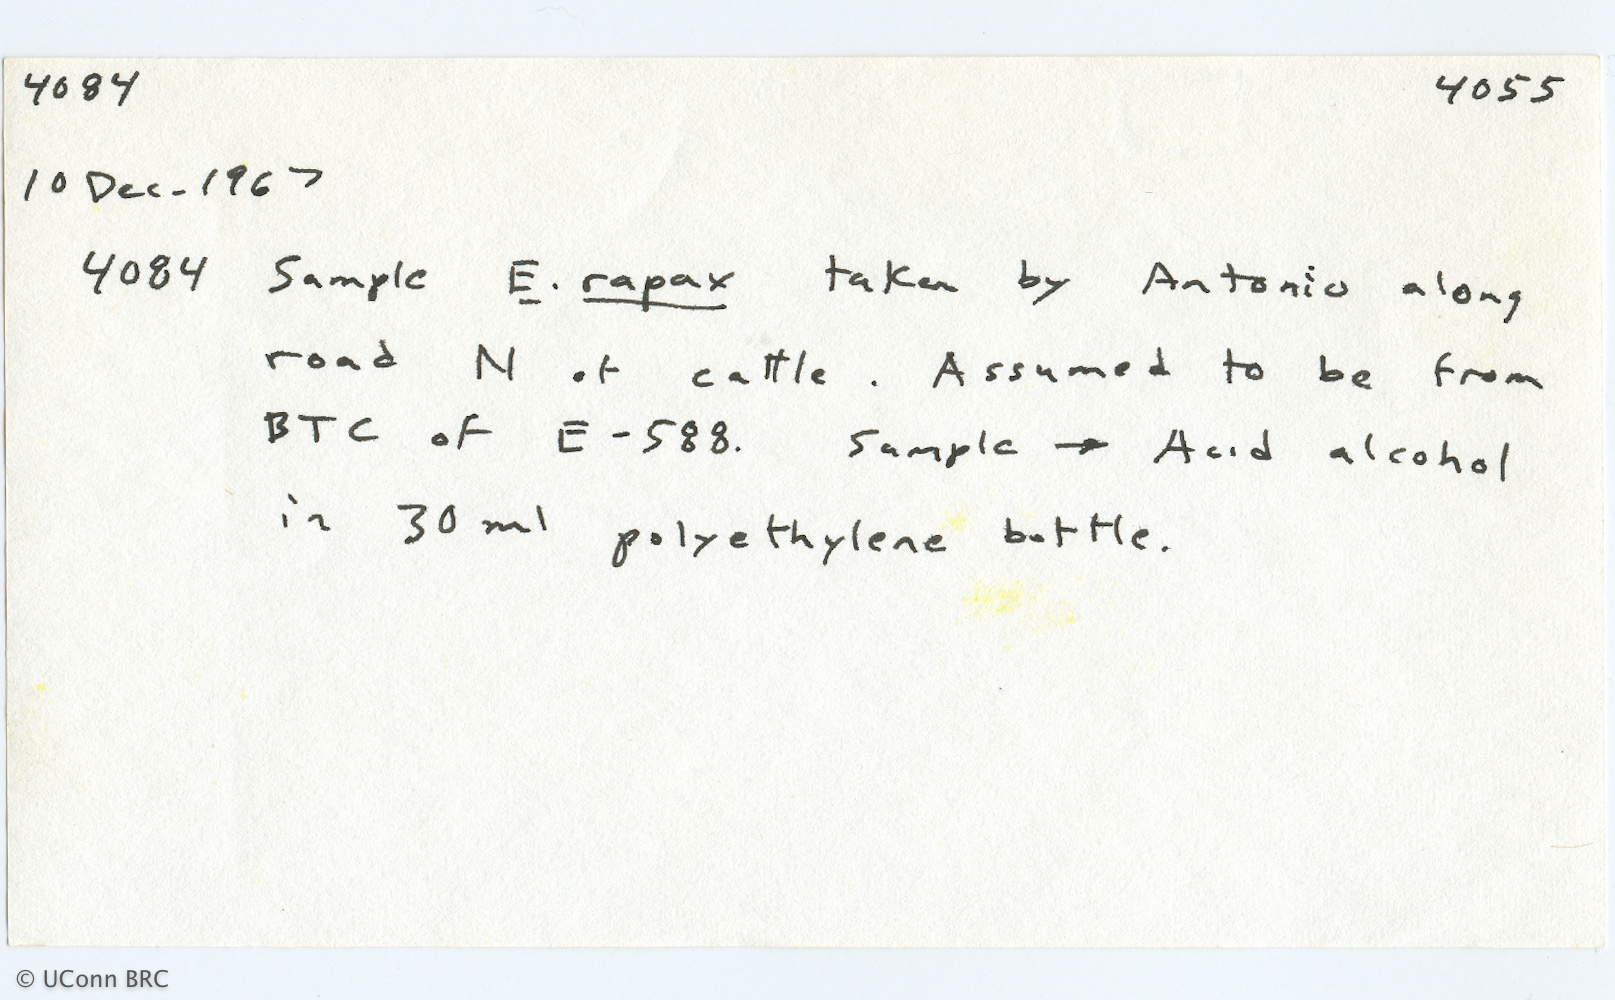 4084 4055
10 Dec. 1967
4084 Sample E. rapax taken by Antonio along
road N of cattle. Assumed to be from
BTC of E-588. Sample → Acid alcohol
in 30 ml polyethylene bottle.
© UConn BRC